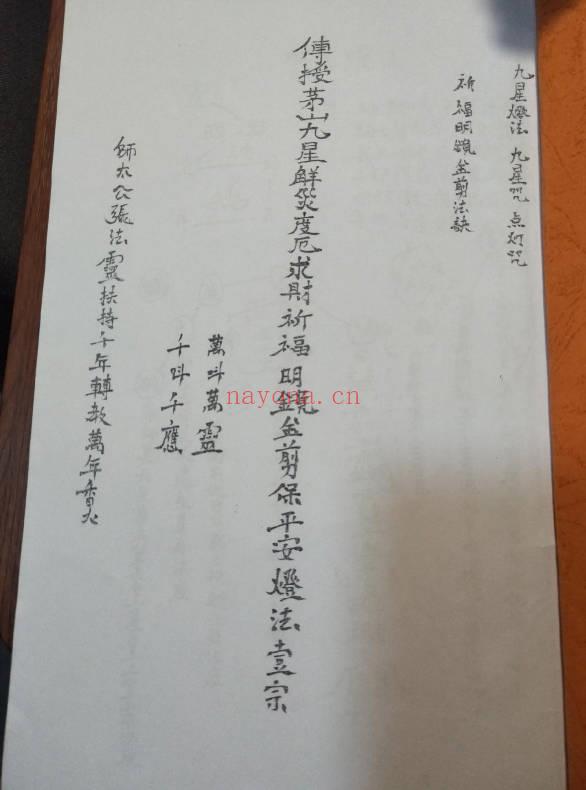 九星燈法 九星咒 点灯咒
祈福明鏡金剪法訣
傳授茅山九星解災度厄求財祈福明鏡金剪保平安燈法壹宗
萬叫萬靈
千叫千應
師太公張法靈扶持千年轉教萬年香火
nayona.cn